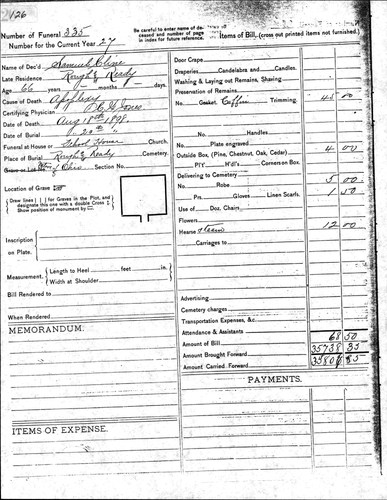 126
Number of Funeral 335
Number for the Current Year 27
Be careful to enter name of de-
ceased and number of page
in index for future reference.
Items of Bill, (cross out printed items not furnished.)
Name of Dec'd Samuel Cline
Late Residence Rough & Ready
Age 66 years - months days.
Cause of Death Apoplexy
Certifying Physician Jones
Date of Death Aug 18th 1898
Date of Burial " 20th "
Funeral at House or School House Church.
Place of Burial Rough & Ready Cemetery.
Grave or Lot No. Ohio Section No.
Location of Grave
Draw lines [ / ] for Graves in the Plot, and
designate this one with a double Cross
Show position of monument by
Inscription
on Plate.
Measurement, Length to Heel feet in.
Width at Shoulder
Bill Rendered
When Rendered
MEMORANDUM.
ITEMS OF EXPENSE.
Door Crape
Draperies Candelabra and Candles.
Washing & Laying out Remains, Shaving
Preservation of Remains
No. Casket, Coffin Trimming, 45 00
No. Handles
Plate engraved
Outside Box, (Pine, Chestnut, Oak, Cedar) 4 00
Pl't H'd'l Corners on Box.
Delivering to Cemetery 5 00
No. Robe 1 50
Prs. Gloves Linen Scarfs.
Use of Doz. Chairs
Flowers
Hearse & team 12 00
Carriages to
Advertising
Cemetery charges
Transportation Expenses, &c.
Attendance & Assistants
Amount of Bill 68 50
Amount Brought Forward 35738 35
Amount Carried Forward 35806 85
PAYMENTS.